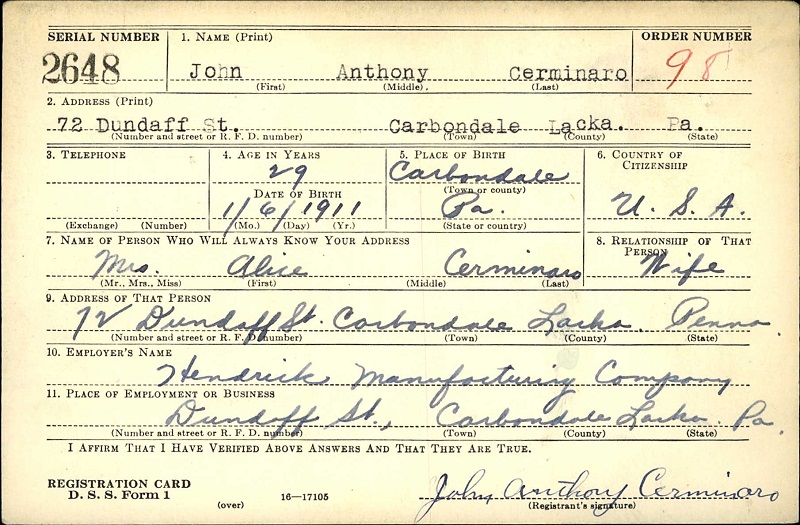 SERIAL NUMBER 1. NAME (Print) ORDER NUMBER
2648 John Anthony Cerminaro 98
(First) (Middle) (Last)
2. ADDRESS (Print)
72 Dundaff St. Carbondale Lacka. Pa.
(Number and street or R. F. D. number) (Town) (County) (State)
3. TELEPHONE 4. AGE IN YEARS 5. PLACE OF BIRTH 6. COUNTRY OF CITIZENSHIP
29 Carbondale
(Town or county)
DATE OF BIRTH
1/6/1911 Pa. U. S. A.
(Exchange) (Number) (Mo.) (Day) (Yr.) (State or country)
7. NAME OF PERSON WHO WILL ALWAYS KNOW YOUR ADDRESS 8. RELATIONSHIP OF THAT PERSON
Mrs. Alice Cerminaro Wife
(Mr., Mrs., Miss) (First) (Middle) (Last)
9. ADDRESS OF THAT PERSON
72 Dundaff St. Carbondale Lacka. Penna.
(Number and street or R. F. D. number) (Town) (County) (State)
10. EMPLOYER'S NAME
Hendrick Manufacturing Company
11. PLACE OF EMPLOYMENT OR BUSINESS
Dundaff St., Carbondale Lacka. Pa.
(Number and street or R. F. D. number) (Town) (County) (State)
I AFFIRM THAT I HAVE VERIFIED ABOVE ANSWERS AND THAT THEY ARE TRUE.
REGISTRATION CARD
D. S. S. Form 1 (over) 16—17105 John Anthony Cerminaro
(Registrant's signature)